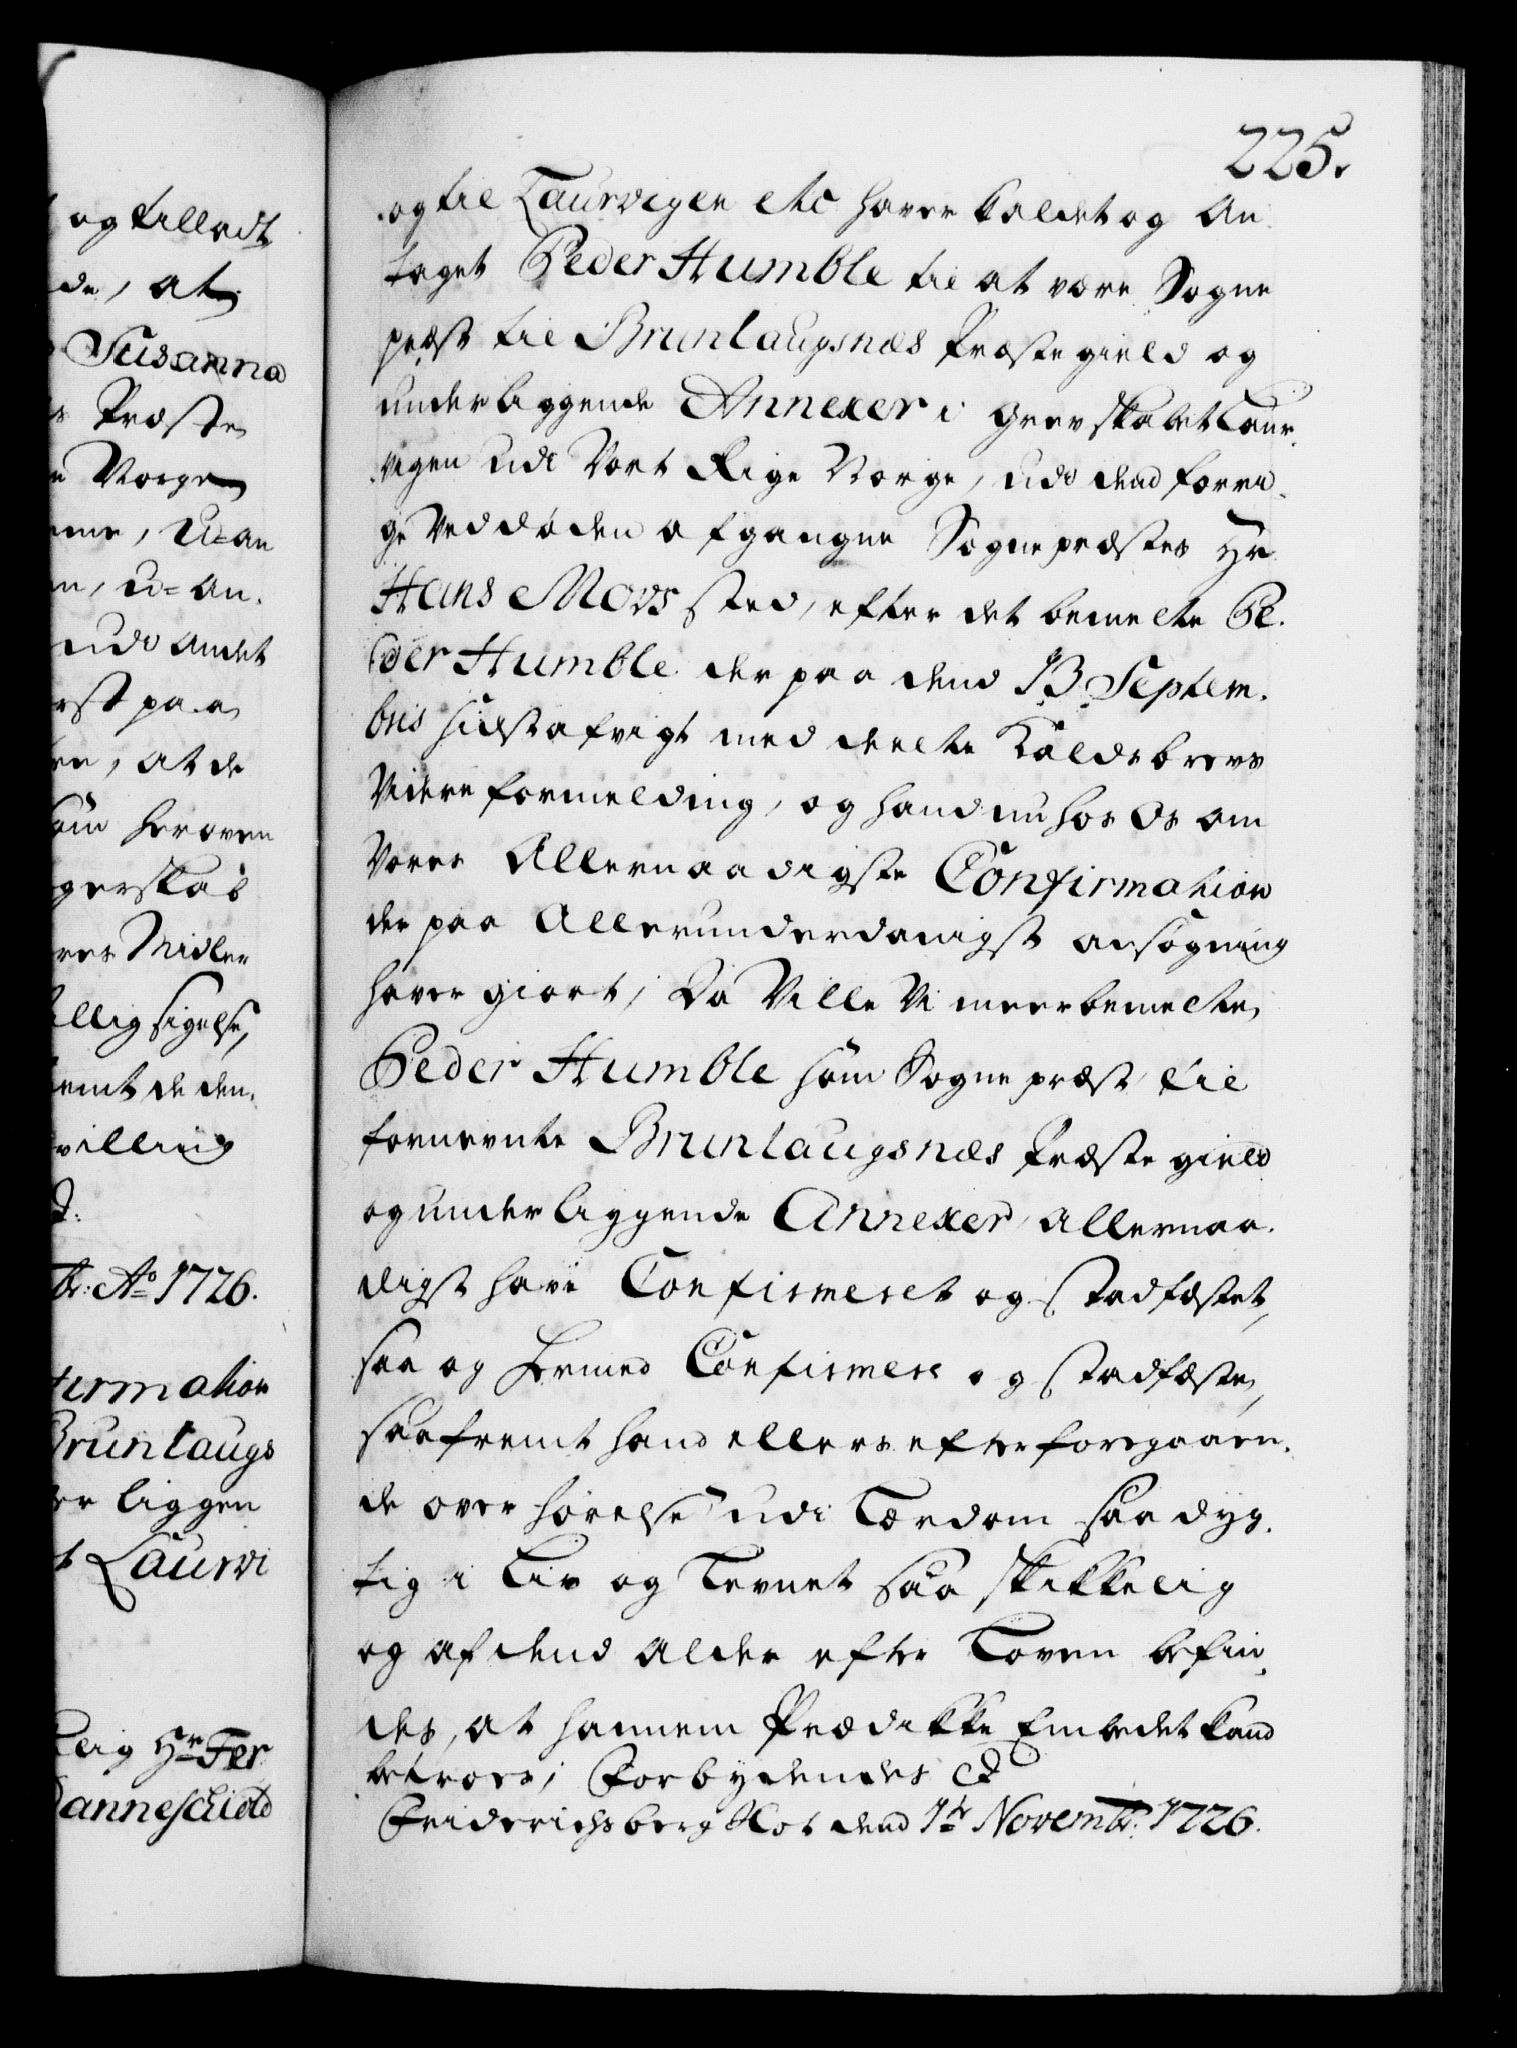 225.
og til Laurvigen etc haver kaldet og An
taget Peder Humble til at være Sogne
præst til Brunlaugsnæs Præstegield og
underliggende Annexer i Grevskabet Laur
vigen udi Vort Rige Norge, udi dend forri
ge ved døden afgangne Sognepræstes Hr
Hans Movs sted, efter det bemelte Pe
der Humble der paa dend 13 Septem
bris sidstafvigt meddeelte Kaldsbrevs
Videre formelding, og hand nu hos Os om
Vores Allernaadigste Confirmation
der paa Allerunderdanigst ansøgning
haver giort; Da Ville Vi meerbemelte
Peder Humble som Sognepræst til
fornevnte Brunlaugsnæs Præstegield
og underliggende Annexer Allernaa
digst have Confirmeret og stadfæstet,
saa og hermed Confirmere og stadfæste,
saafremt hand ellers efter foregaaen
de overhørelse udi Lærdom saa dyg
tig i Liv og Levnet saa skikkelig
og af dend Alder efter Loven befin
des, at hannem Prædikke Embedet kand
betroes; Forbydendes etc
Friderichsberg Slot dend 1te Novembr: 1726.
og tilladt
de, at
Susanna
Præste
Norge
udi andet
paa
at de
heroven
gerskab
Midler
llig sigelse,
emt de den
villing
br: Ao 1726.
firmation
Brunlaugs
er liggen
t Laurvi
Hr Fer
Danneschiold